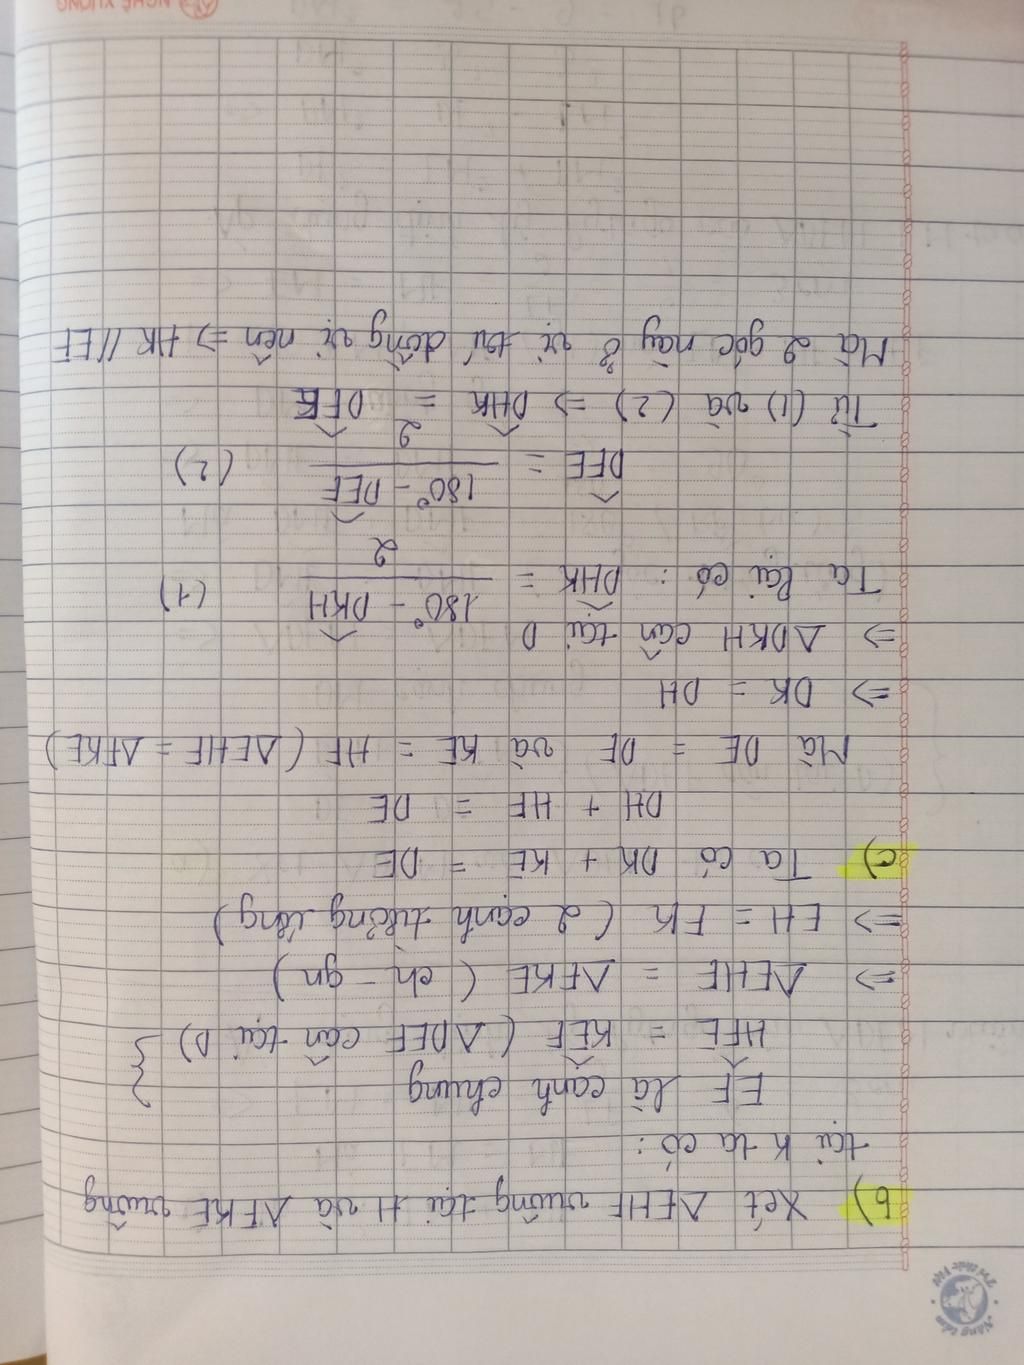 Nâng tầm
Tri thức Việt
b) Xét ΔEHF vuông tại H và ΔFKE vuông
tại K ta có:
EF là cạnh chung
HFE = KEF (ΔDEF cân tại D) }
⇒ ΔEHF = ΔFKE (ch - gn)
⇒ EH = FK (2 cạnh tương ứng)
c) Ta có DK + KE = DE
DH + HF = DE
Mà DE = DF và KE = HF (ΔEHF = ΔFKE)
⇒ DK = DH
⇒ ΔDKH cân tại D
Ta lại có: DHK = (180° - DKH) / 2 (1)
DFE = (180° - DEF) / 2 (2)
Từ (1) và (2) ⇒ DHK = DFE
Mà 2 góc này ở vị trí đồng vị nên ⇒ HK // EF